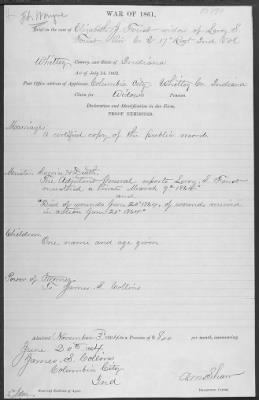 Ft. Wayne
WAR OF 1861.
Held in the case of Elizabeth J. Foust widow of Levi S.
Foust Co. E 17 Regt Ind Vol
Whitley County, and State of Indiana
Act of July 14, 1862.
Post Office address of Applicant: Columbia City Whitley Co. Indiana
Claim for Widow's Pension.
Declaration and Identification in due Form.
PROOF EXHIBITED.
Marriage:
A certified copy of the public record.
Muster, Service & Death:
The Adjutant General reports Levi S. Foust
enrolled a Private March 9" 1864
and
"Died of wounds June 20" 1864, of wounds received
in action June 20" 1864"
Children:
One name and age given
Power of Attorney
To James S. Collins
Admitted November 3d 1864 to a Pension of $8.00 per month, commencing
June 20th 1864
James S. Collins
Columbia City
Ind